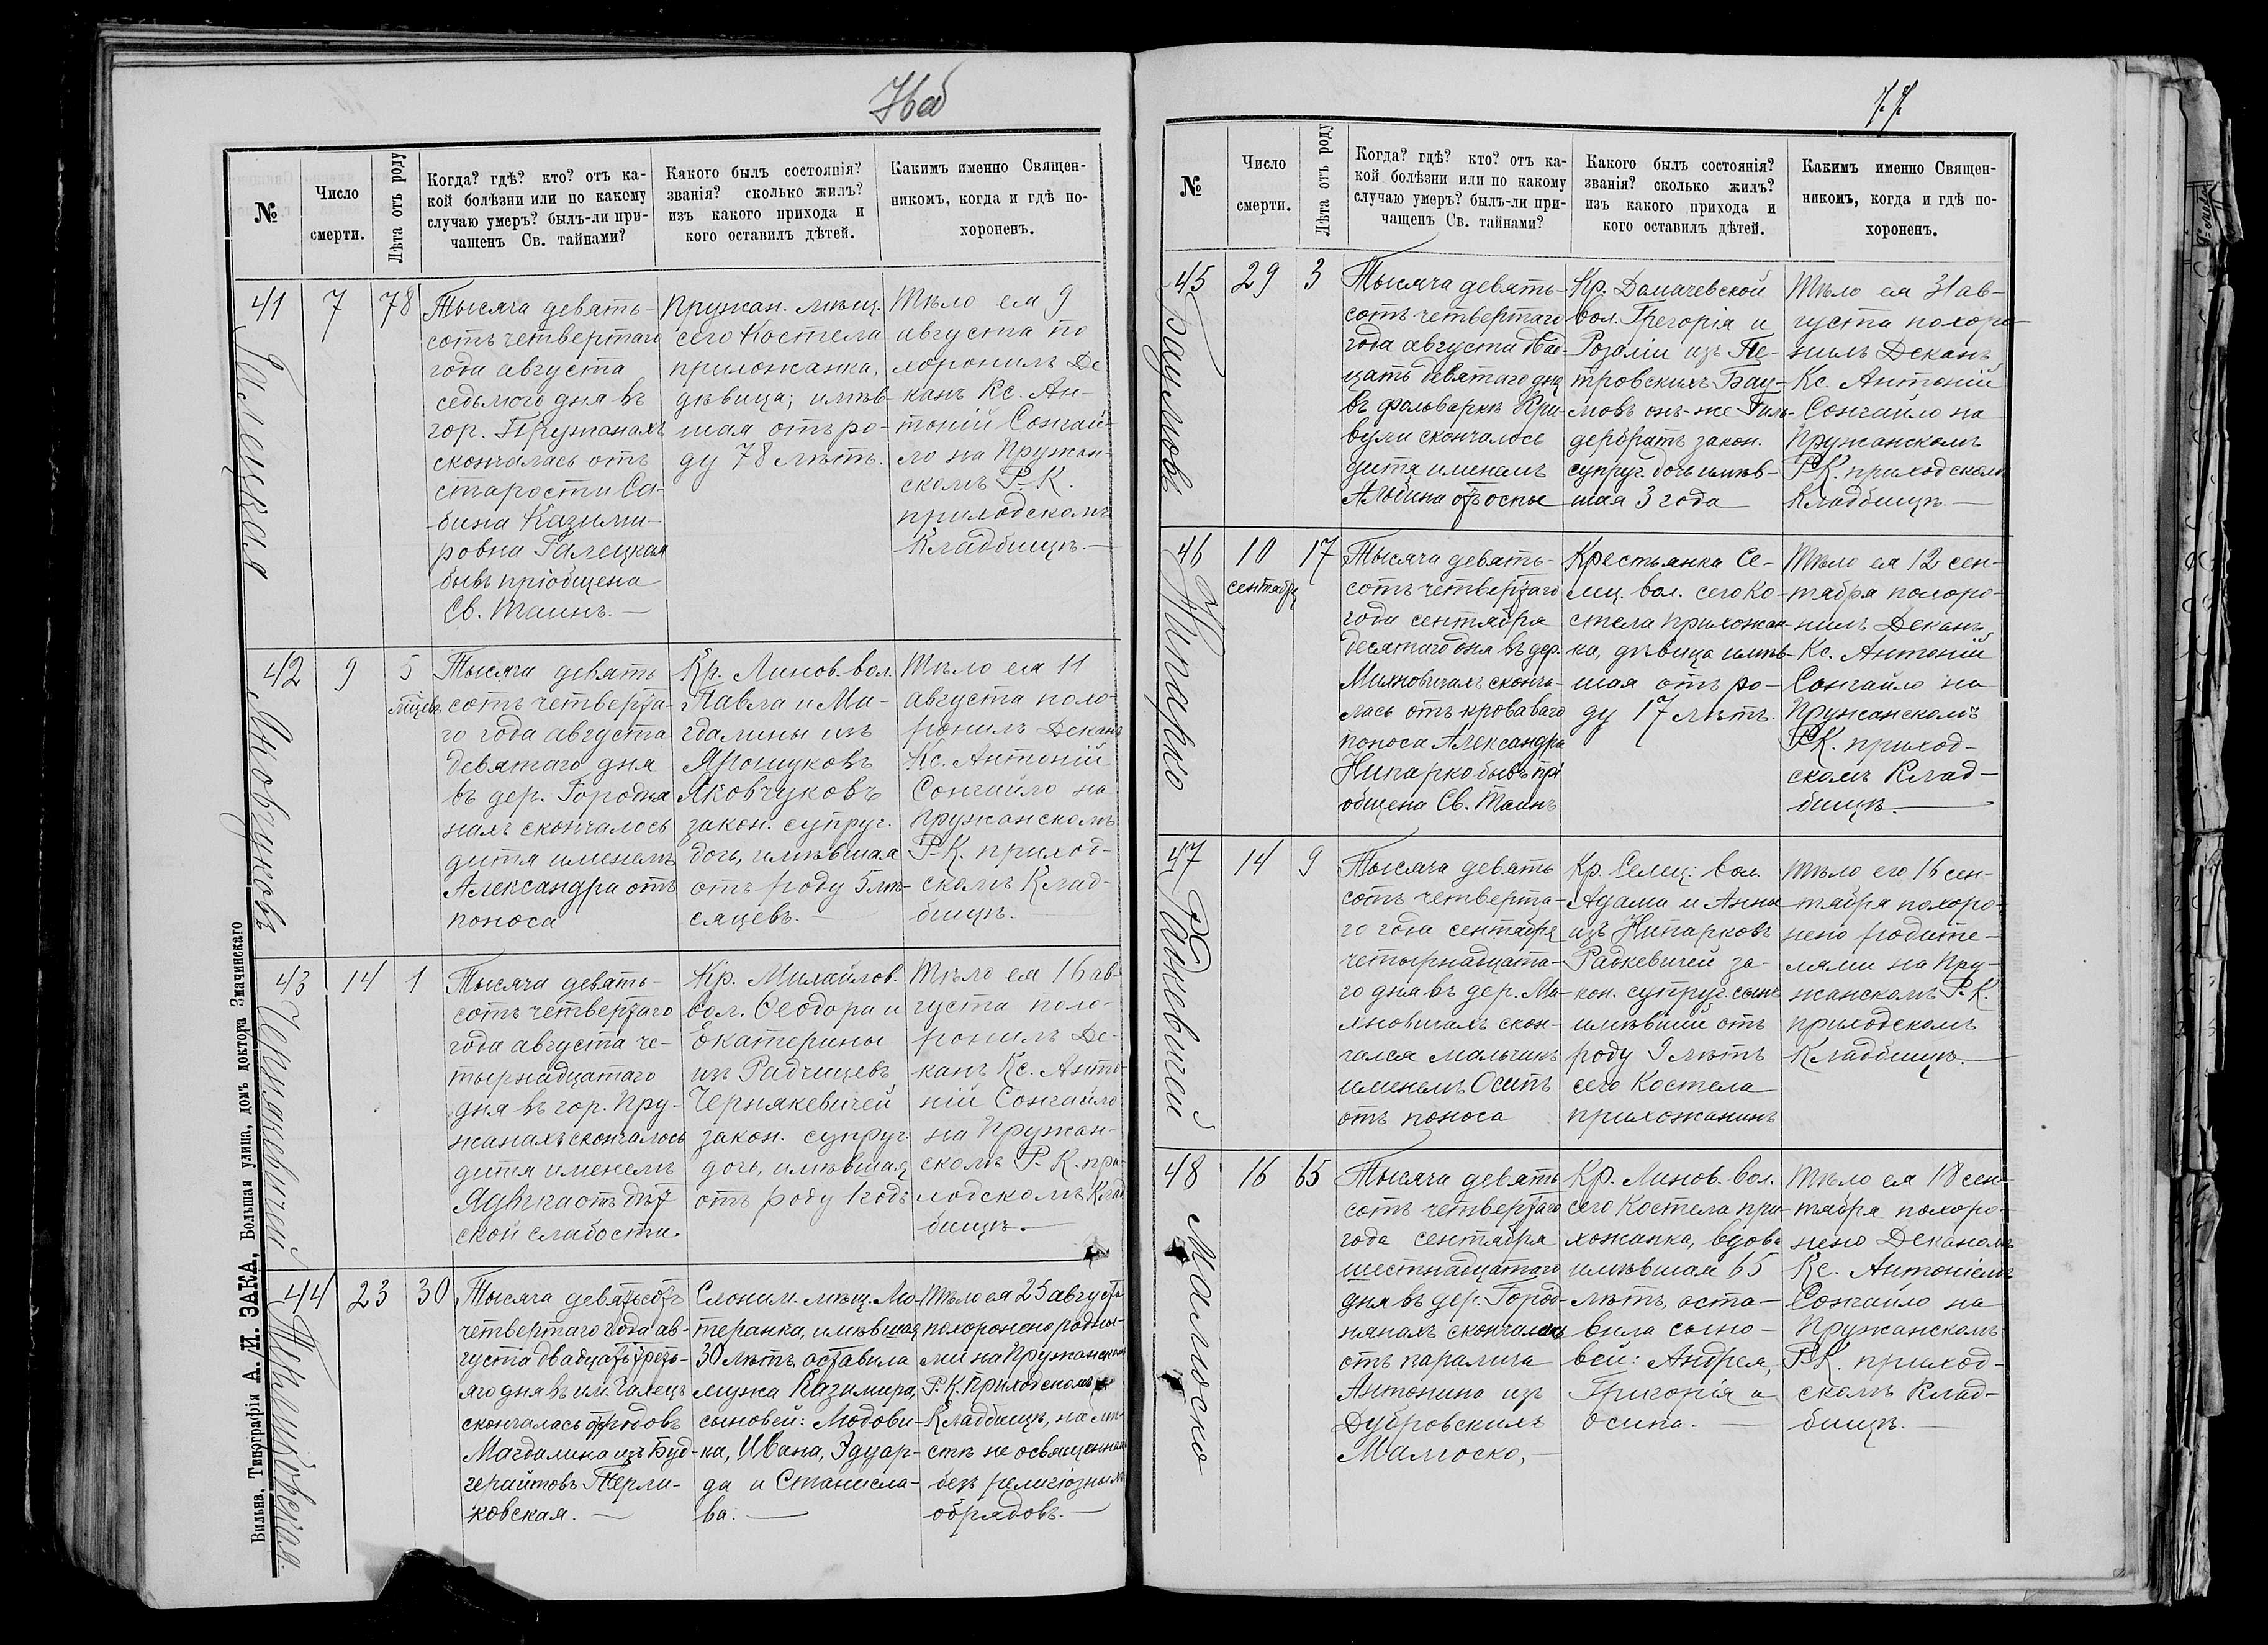 76об
№
Число
смерти.
Лѣта отъ роду
Когда? гдѣ? кто? отъ ка-
кой болѣзни или по какому
случаю умеръ? былъ-ли при-
чащенъ Св. тайнами?
Какого былъ состоянія?
званія? сколько жилъ?
изъ какого прихода и
кого оставилъ дѣтей.
Какимъ именно Священ-
никомъ, когда и гдѣ по-
хороненъ.
41
Галецкая
7
78
Тысяча девять-
сотъ четвертаго
года августа
седьмого дня въ
гор. Пружанахъ
скончалась отъ
старости Са-
бина Казими-
ровна Галецкая
бывъ пріобщена
Св. Таинъ.—
Пружан. мѣщ.
сего Костела
прихожанка,
дѣвица; имѣв-
шая отъ ро-
ду 78 лѣтъ.
Тѣло ея 9
августа по
хоронилъ Де
канъ Кс. Ан-
тоній Сонгай-
ло на Пружан-
скомъ Р.-К.
приходскомъ
Кладбищѣ.—
42
Яковчуковъ
9
5
мѣсяцевъ
Тысяча девять
сотъ четверта-
го года августа
девятаго дня
въ дер. Городня
нахъ скончалось
дитя именемъ
Александра отъ
поноса
Кр. Линов. вол.
Павла и Ма-
гдалины изъ
Ярошуковъ
Яковчуковъ
закон. супруг.
дочь, имѣвшая
отъ роду 5 мѣ-
сяцевъ.—
Тѣло ея 11
августа похо-
ронилъ Деканъ
Кс. Антоній
Сонгайло на
Пружанскомъ
Р.-К. приход-
скомъ Клад-
бищѣ.
43
Чернякевичей
14
1
Тысяча девять-
сотъ четвертаго
года августа че-
тырнадцатаго
дня въ гор. Пру-
жанахъ скончалось
дитя именемъ
Ядвига отъ дѣт
ской слабости.
Кр. Михайлов.
вол. Ѳеодора и
Екатерины
изъ Радчицевъ
Чернякевичей
закон. супруг.
дочь, имѣвшая
отъ роду 1 годъ
Тѣло ея 16 ав-
густа похо-
ронилъ Де-
канъ Кс. Анто-
ній Сонгайло
на Пружан-
скомъ Р.-К. при-
ходскомъ Клад
бищѣ.—
44
Перликовская.
23
30
Тысяча девятьсотъ
четвертаго года ав-
густа двадцать треть-
яго дня въ им. Галецъ
скончалась отъ родовъ
Магдалина изъ Буд-
герайтовъ Перли-
ковская.—
Слоним. мѣщ. Лю-
теранка, имѣвшая
30 лѣтъ, оставила
мужа Казимира,
сыновей: Людови-
ка, Ивана, Эдуар-
да и Станисла-
ва.—
Тѣло ея 25 августа
похоронено родны-
ми на Пружанскомъ
Р.-К. Приходскомъ
Кладбищѣ, на мѣ-
стѣ не освященномъ
безъ религіозныхъ
обрядовъ.—
Вильна, Типографія А. И. ЗАКА, Большая улица, домъ доктора Змачинскаго
77
№
Число
смерти.
Лѣта отъ роду
Когда? гдѣ? кто? отъ ка-
кой болѣзни или по какому
случаю умеръ? былъ-ли при-
чащенъ Св. тайнами?
Какого былъ состоянія?
званія? сколько жилъ?
изъ какого прихода и
кого оставилъ дѣтей.
Какимъ именно Священ-
никомъ, когда и гдѣ по-
хороненъ.
45
Баумовъ
29
3
Тысяча девять-
сотъ четвертаго
года августа двад-
цать девятаго дня
въ фольваркѣ Кри-
вули скончалось
дитя именемъ
Альбина отъ оспы
Кр. Домачевской
вол. Грегорія и
Розаліи изъ Пе-
тровскихъ Бау-
мовъ онъ-же Гиль-
дербратъ закон.
супруг. дочь имѣв-
шая 3 года
Тѣло ея 31 ав-
густа похоро-
нилъ Деканъ
Кс. Антоній
Сонгайло на
Пружанскомъ
Р.К. приходскомъ
Кладбищѣ.—
46
Нипарко
10
сентября
17
Тысяча девять-
сотъ четвертаго
года сентября
десятаго дня въ дер.
Михновичахъ сконча-
лась отъ кроваваго
поноса Александра
Нипарко бывъ прі
общена Св. Таинъ
Крестьянка Се-
лец. вол. сего Ко-
стела прихожан
ка, дѣвица имѣв-
шая отъ ро-
ду 17 лѣтъ.
Тѣло ея 12 сен-
тября похоро-
нилъ Деканъ
Кс. Антоній
Сонгайло на
Пружанскомъ
Р.К. приход-
скомъ Клад-
бищѣ.—
47
Радкевичей
14
9
Тысяча девять
сотъ четверта-
го года сентября
четырнадцата-
го дня въ дер. Ми-
хновичахъ скон-
чался мальчикъ
именемъ Осипъ
отъ поноса
Кр. Селец. вол.
Адама и Анны
изъ Нипарковъ
Радкевичей за-
кон. супруг. сынъ
имѣвшій отъ
роду 9 лѣтъ
сего Костела
прихожанинъ
Тѣло его 16 сен-
тября похоро-
нено родите-
лями на Пру-
жанскомъ Р.-К.
приходскомъ
Кладбищѣ.—
48
Малюско
16
65
Тысяча девять
сотъ четвертаго
года сентября
шестнадцатаго
дня въ дер. Город-
нянахъ скончалась
отъ паралича
Антонина изъ
Дубровскихъ
Малюско,—
Кр. Линов. вол.
сего Костела при-
хожанка, вдова
имѣвшая 65
лѣтъ, оста-
вила сыно-
вей: Андрея,
Григорія и
Осипа.—
Тѣло ея 18 сен-
тября похоро-
нено Деканомъ
Кс. Антоніемъ
Сонгайло на
Пружанскомъ
Р.К. приход-
скомъ Клад-
бищѣ.—